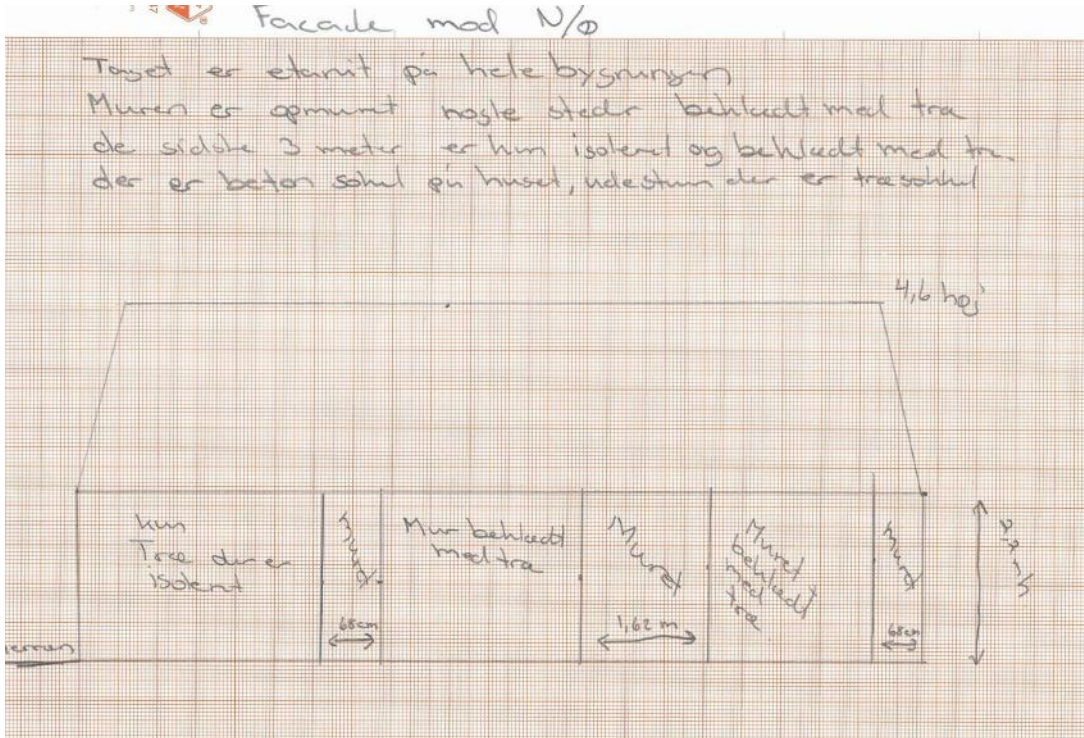 Facade mod N/Ø
Taget er etarnit på hele bygningen
Muren er opmuret nogle steder behklædt med træ
de sidste 3 meter er kun isoleret og beklædt med træ.
der er beton sokul på huset, udestuen der er træsokkul
4,6 høj
kun
Træ der er
isolent
Muret
68cm
Mur behlædt
med træ
Muret
1,62 m
Muret
behlædt
med
træ
Muret
68cm